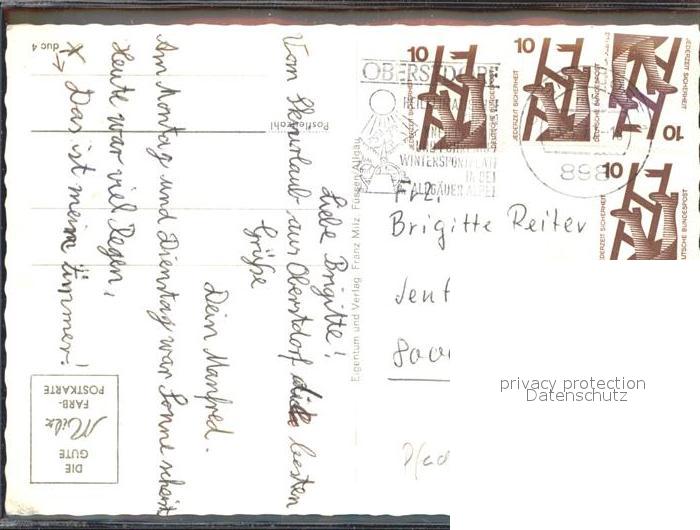 Liebe Brigitte!
Vom Skiurlaub aus Oberstdorf die besten
Grüße
Dein Manfred.
Am Montag und Dienstag war Sonne scheint
Heute war viel Regen,
X Das ist mein Zimmer!
duc 4
Postleitzahl
Eigentum und Verlag Franz Milz Füssen/Allgäu
DIE
GUTE
Milz
FARB-
POSTKARTE
OBERSTDORF
WINTERSPORTPLATZ
IN DEN
ALLGÄUER ALPEN
898
10
JEDERZEIT SICHERHEIT
DEUTSCHE BUNDESPOST
10
JEDERZEIT SICHERHEIT
DEUTSCHE BUNDESPOST
10
JEDERZEIT SICHERHEIT
10
JEDERZEIT SICHERHEIT
DEUTSCHE BUNDESPOST
Frl.
Brigitte Reiter
privacy protection
Datenschutz